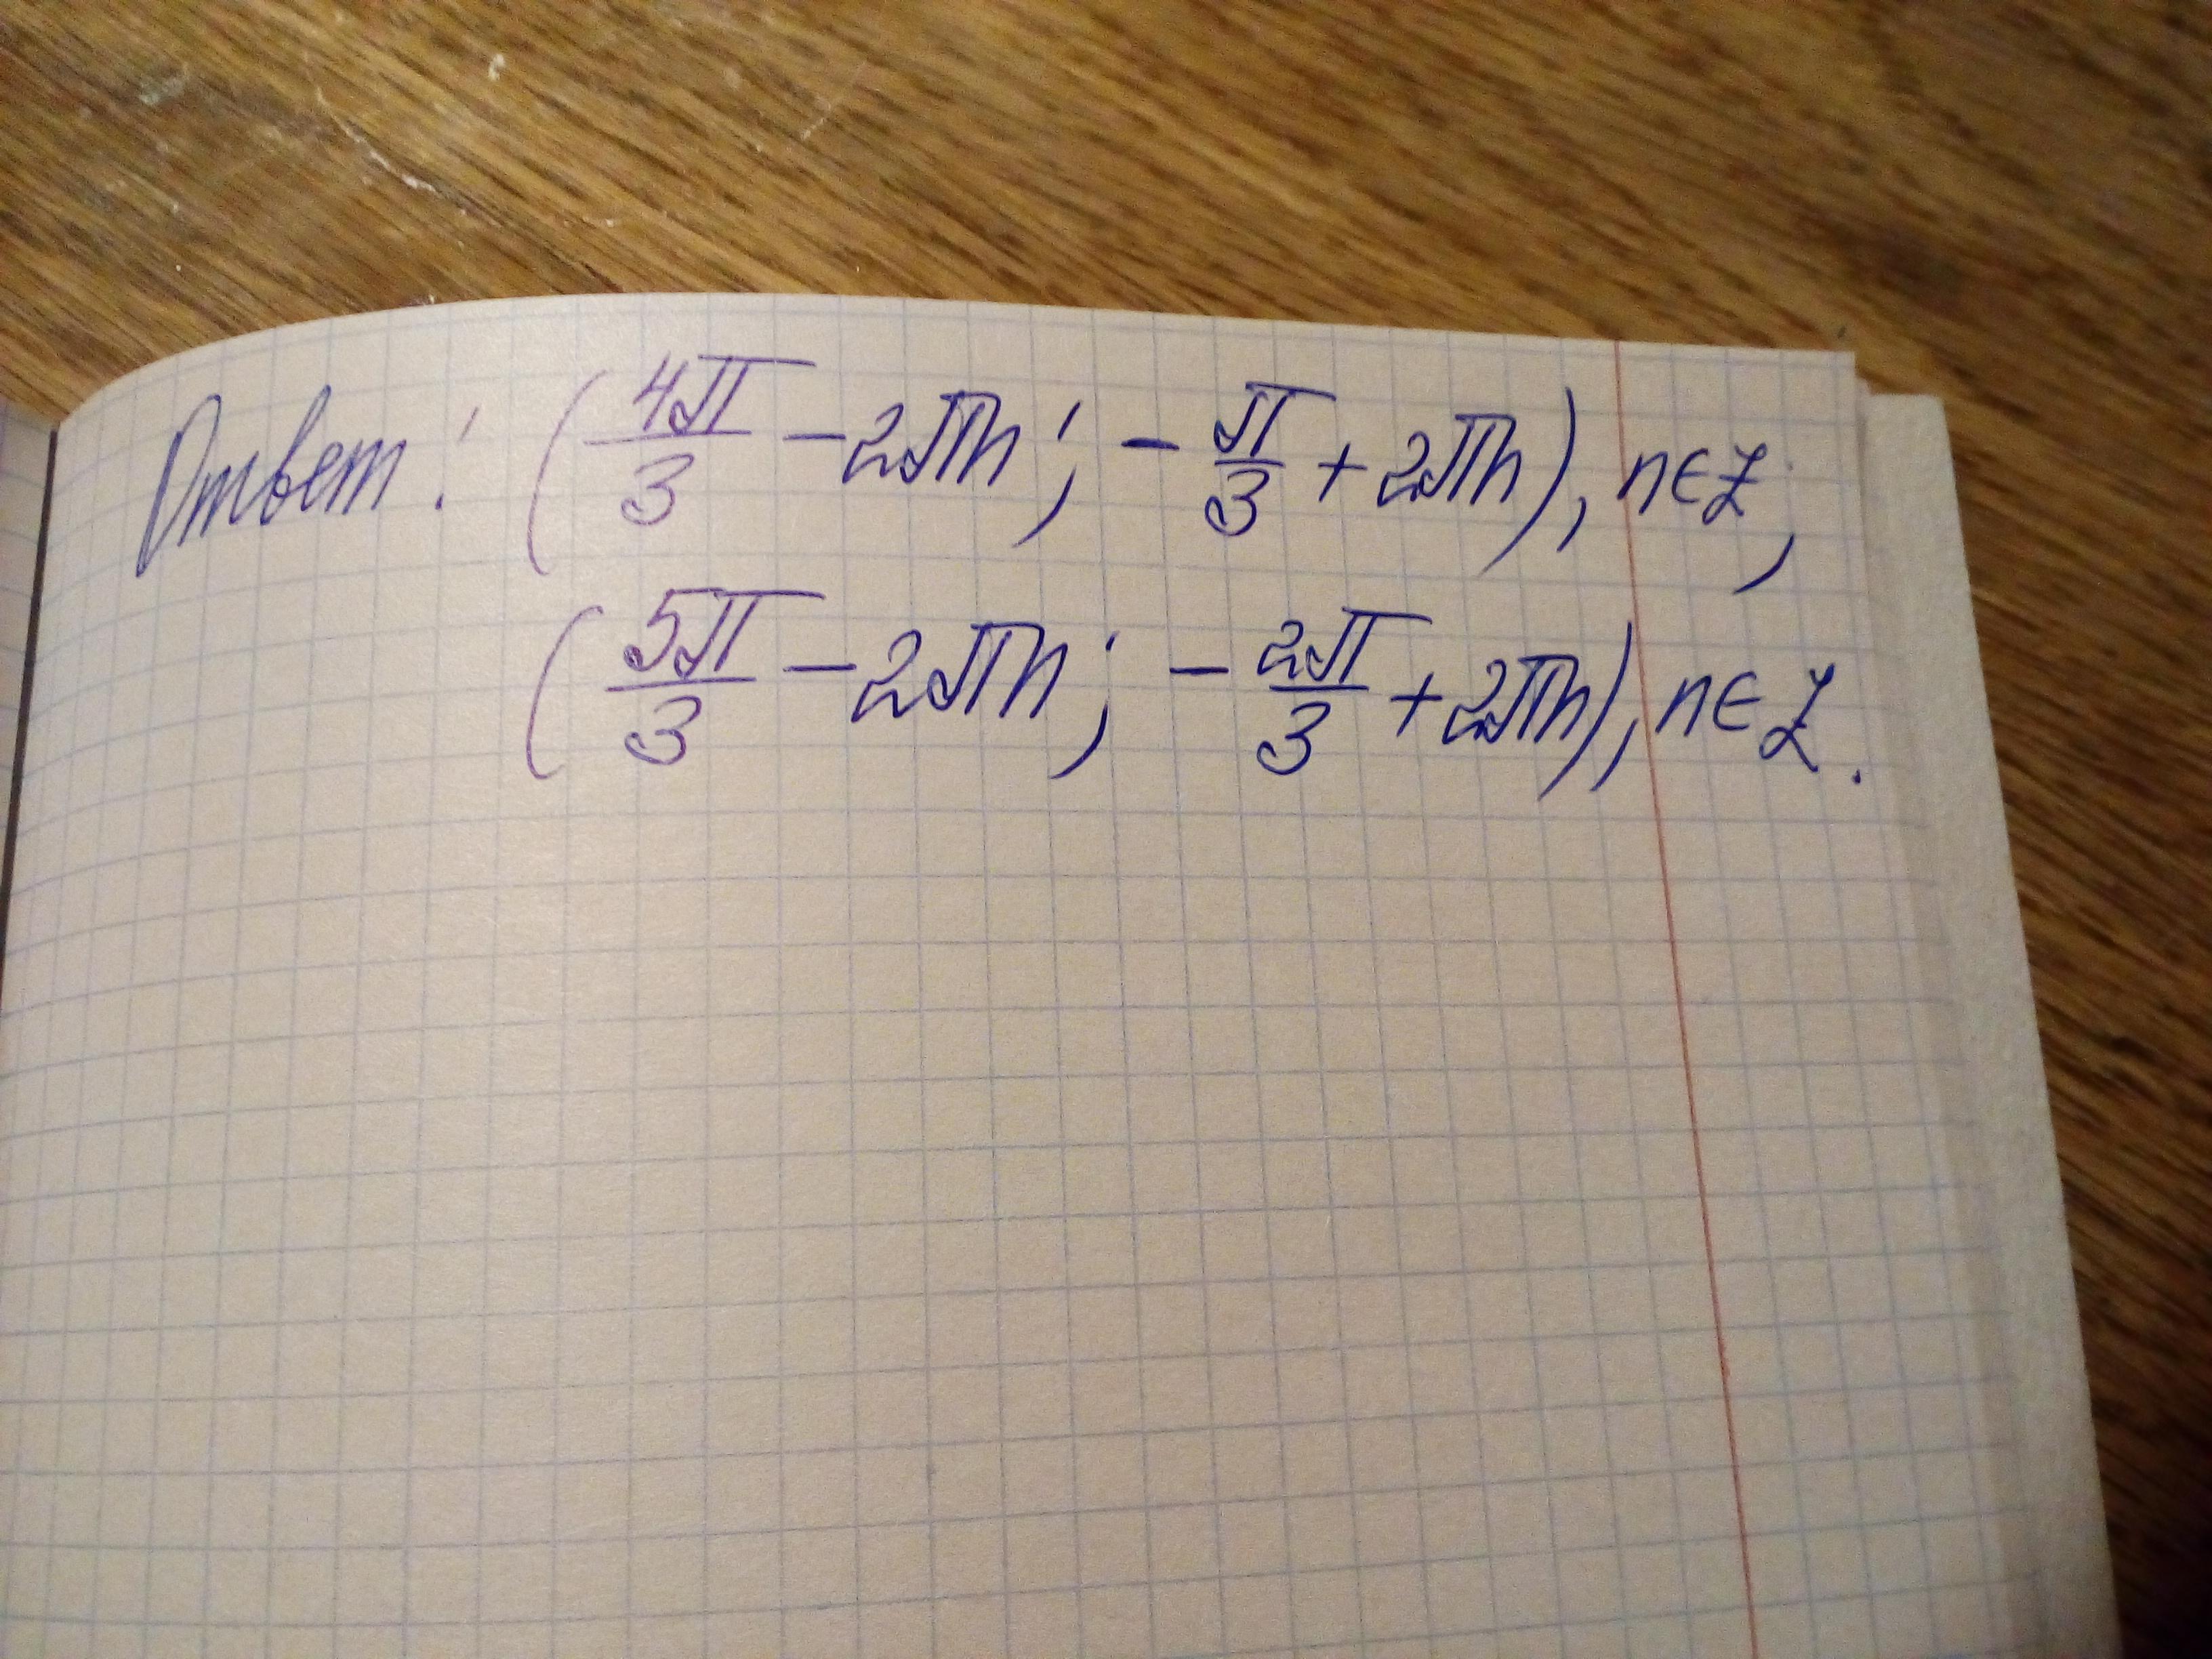 Ответ: (4π/3 − 2πn; − π/3 + 2πn), n∈Z;
(5π/3 − 2πn; − 2π/3 + 2πn), n∈Z.